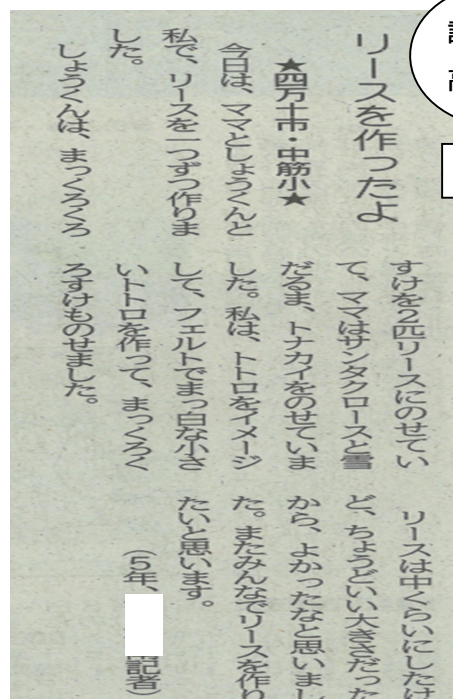 リースを作ったよ
★四万十市・中筋小★
今日は、ママとしょうくんと
私で、リースを一つずつ作りま
した。
しょうくんは、まっくろくろ
すけを2匹リースにのせてい
て、ママはサンタクロースと雪
だるま、トナカイをのせていま
した。私は、トトロをイメージ
して、フェルトでまっ白な小さ
いトトロを作って、まっくろく
ろすけものせました。
リースは中くらいにしたけ
ど、ちょうどいい大きさだった
から、よかったなと思いまし
た。またみんなでリースを作り
たいと思います。
(5年、
記者)